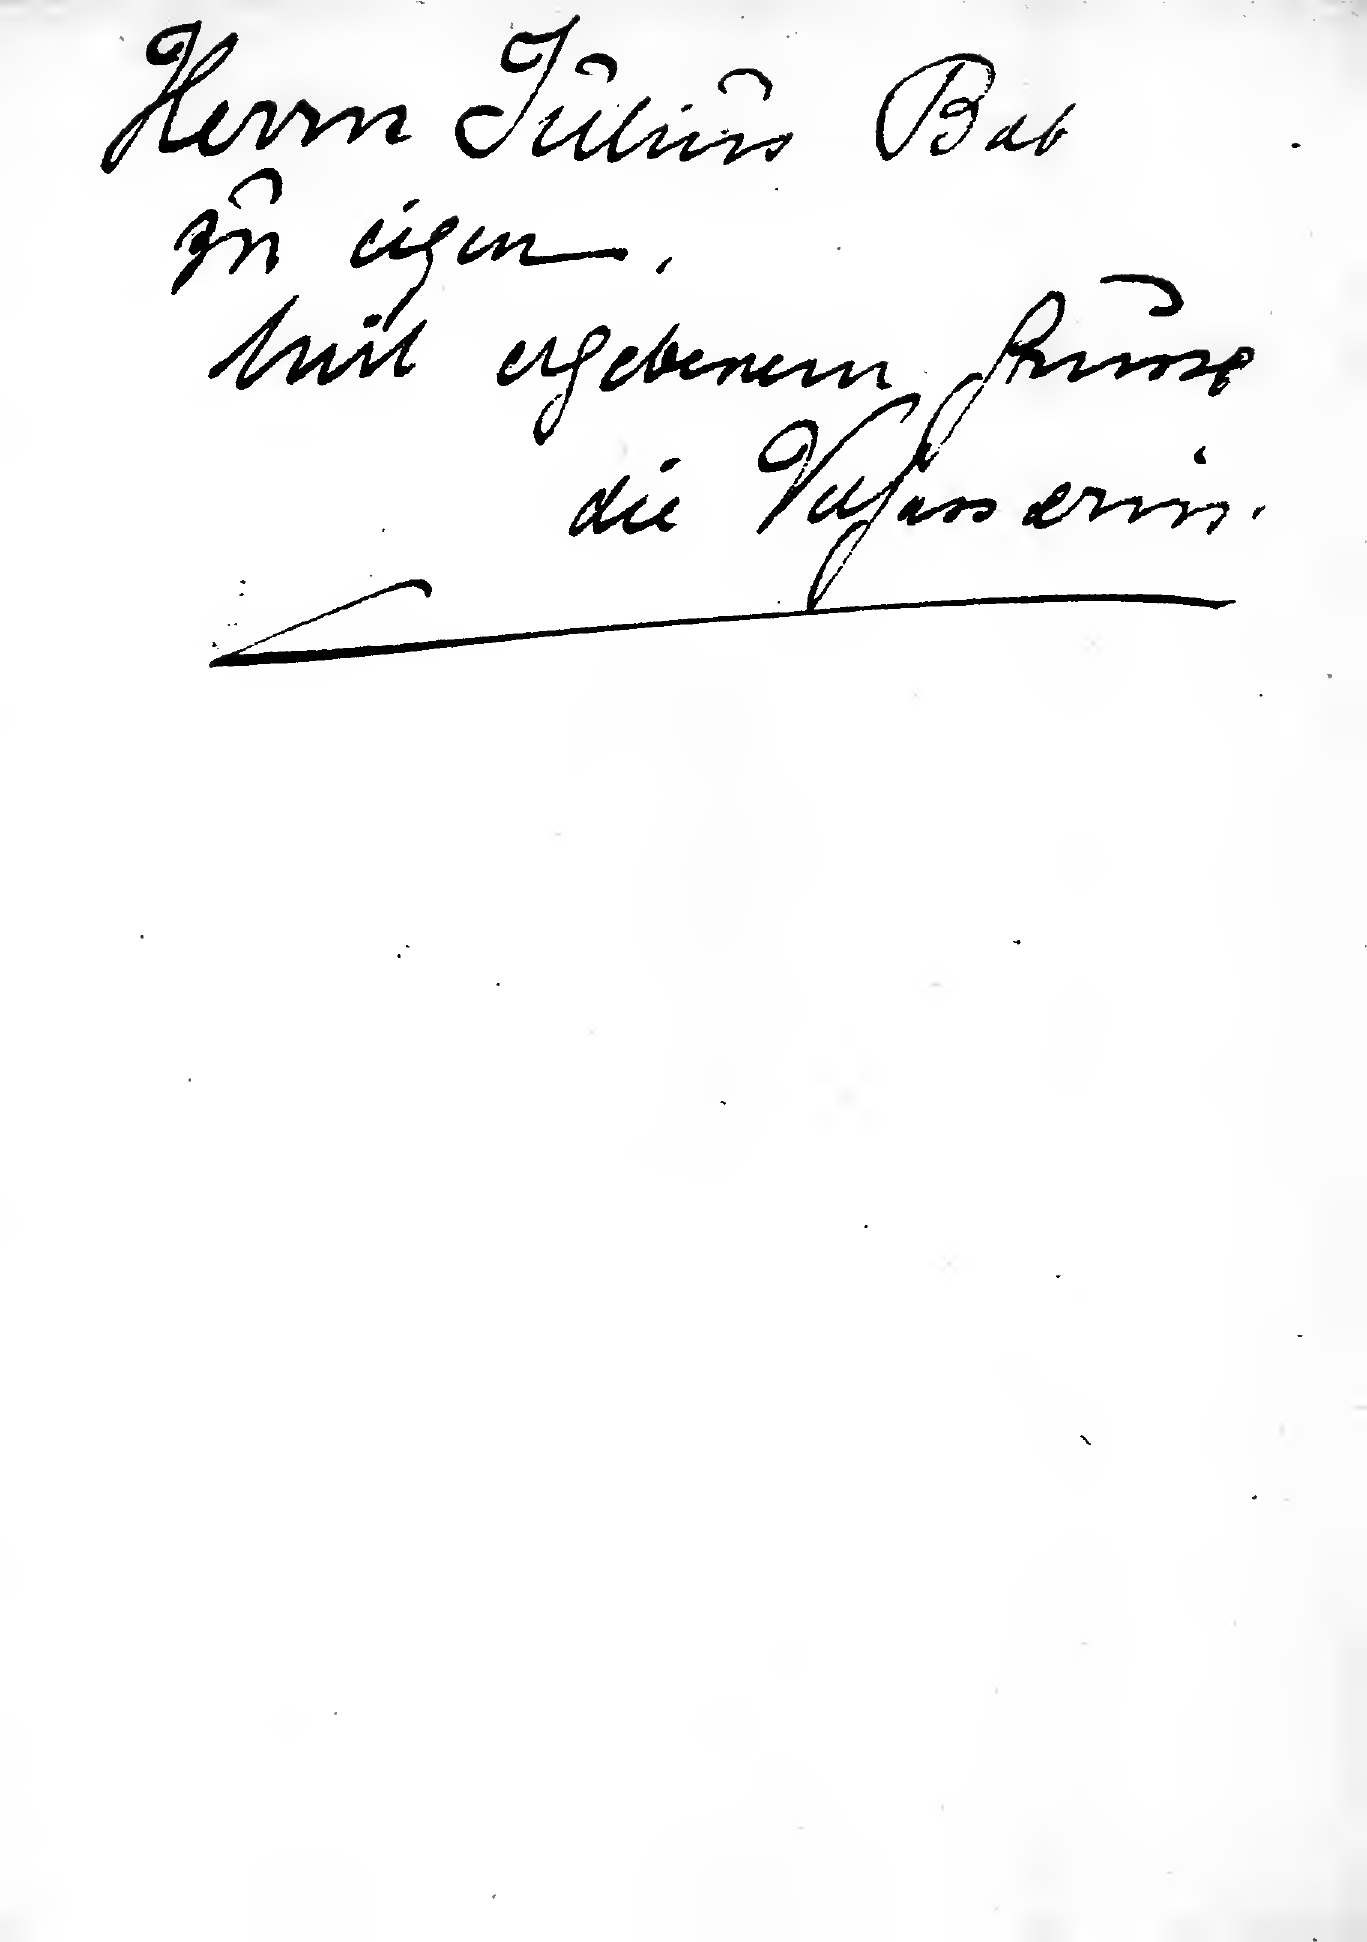 Herrn Julius Bab
zu eigen.
Mit ergebenem Grusse
die Verfasserin.